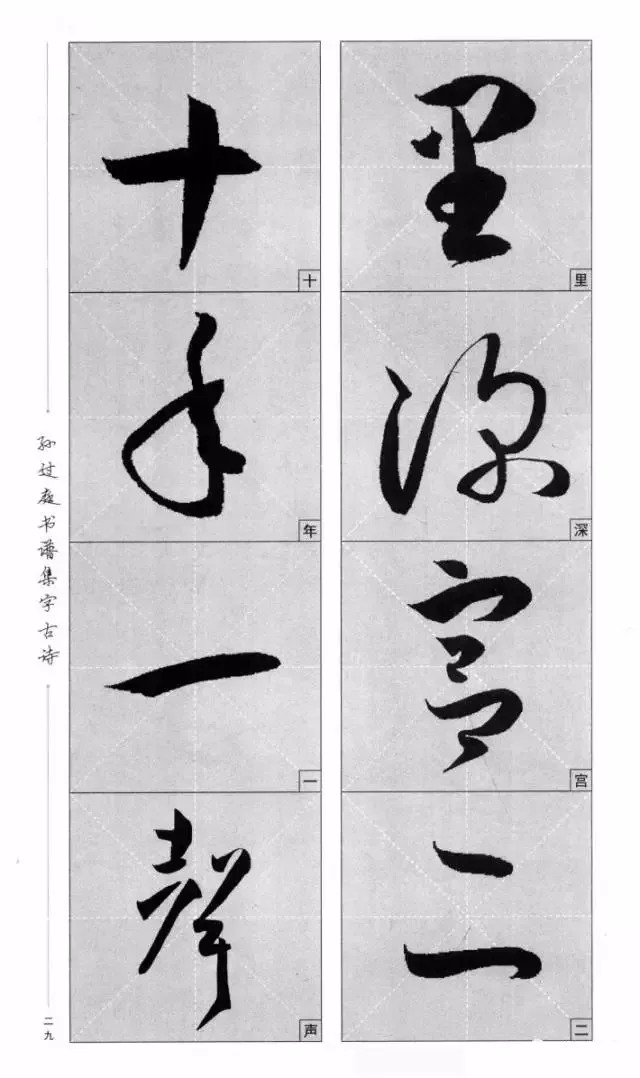 里深宫二
十年一声
孙过庭书谱集字古诗
二九